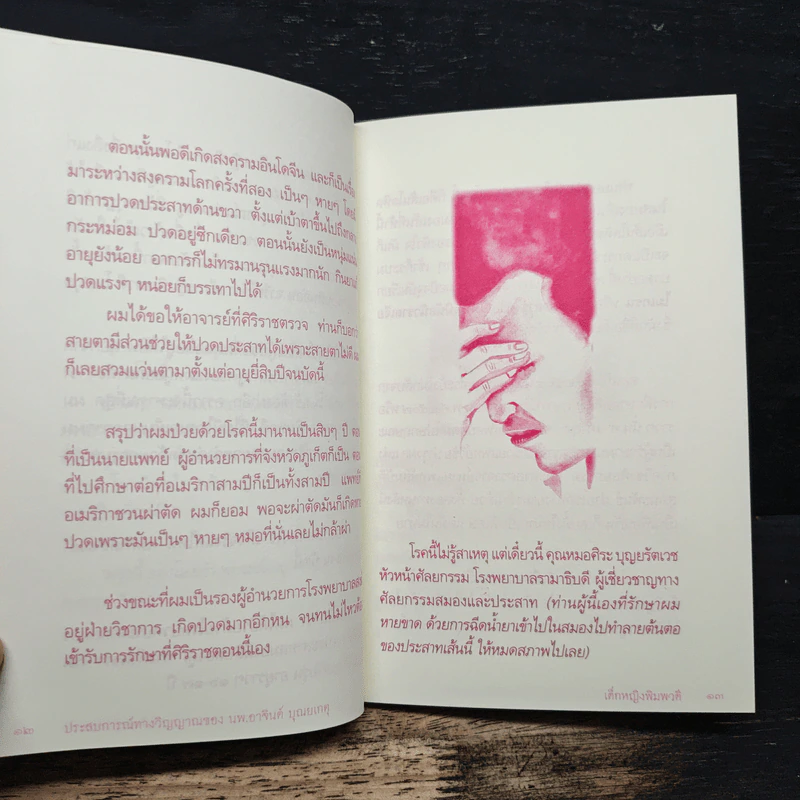 ตอนนั้นพอดีเกิดสงครามอินโดจีน และก็เป็น
มาระหว่างสงครามโลกครั้งที่สอง เป็นๆ หายๆ
อาการปวดประสาทด้านขวา ตั้งแต่เบ้าตาขึ้นไปถึง
กระหม่อม ปวดอยู่ซีกเดียว ตอนนั้นยังเป็นหนุ่ม
อายุยังน้อย อาการก็ไม่ทรมานรุนแรงมากนัก
ปวดแรงๆ หน่อยก็บรรเทาไปได้
ผมได้ขอให้อาจารย์ที่ศิริราชตรวจ ท่านก็บอกว่า
สายตามีส่วนช่วยให้ปวดประสาทได้เพราะสายตาไม่ดี
ก็เลยสวมแว่นตามาตั้งแต่อายุยี่สิบปีจนบัดนี้
สรุปว่าผมป่วยด้วยโรคนี้มานานเป็นสิบๆ ปี
ที่เป็นนายแพทย์ ผู้อำนวยการที่จังหวัดภูเก็ตก็เป็น
ที่ไปศึกษาต่อที่อเมริกาสามปีก็เป็นทั้งสามปี
อเมริกาชวนผ่าตัด ผมก็ยอม พอจะผ่าตัดมันก็เกิด
ปวดเพราะมันเป็นๆ หายๆ หมอที่นั่นเลยไม่กล้าผ่า
ช่วงขณะที่ผมเป็นรองผู้อำนวยการโรงพยาบาล
อยู่ฝ่ายวิชาการ เกิดปวดมากอีกหน จนทนไม่ไหว
เข้ารับการรักษาที่ศิริราชตอนนี้เอง
๑๒ ประสบการณ์ทางวิญญาณของ นพ.อาจินต์ บุณยเกตุ
โรคนี้ไม่รู้สาเหตุ แต่เดี๋ยวนี้ คุณหมอศิระ บุญยรัตเวช
หัวหน้าศัลยกรรม โรงพยาบาลรามาธิบดี ผู้เชี่ยวชาญทาง
ศัลยกรรมสมองและประสาท (ท่านผู้นี้เองที่รักษาผม
หายขาด ด้วยการฉีดน้ำยาเข้าไปในสมองไปทำลายต้นตอ
ของประสาทเส้นนี้ ให้หมดสภาพไปเลย)
เด็กหญิงพิมพวดี ๑๓